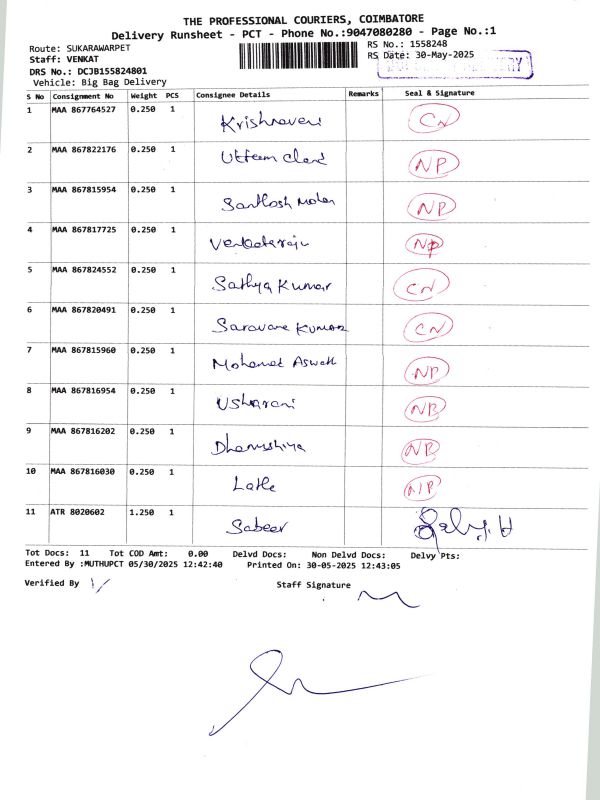 THE PROFESSIONAL COURIERS, COIMBATORE
Delivery Runsheet - PCT - Phone No.:9047080280 - Page No.:1
Route: SUKARAWARPET RS No.: 1558248
Staff: VENKAT RS Date: 30-May-2025
DRS No.: DCJB155824801
Vehicle: Big Bag Delivery
S No Consignment No Weight PCS Consignee Details Remarks Seal & Signature
1 MAA 867764527 0.250 1 Krishnaveni CN
2 MAA 867822176 0.250 1 Uttam Chand NP
3 MAA 867815954 0.250 1 Santhosh Mohan NP
4 MAA 867817725 0.250 1 Venkataraju NP
5 MAA 867824552 0.250 1 Sathya Kumar CN
6 MAA 867820491 0.250 1 Saravana Kumar CN
7 MAA 867815960 0.250 1 Mohamed Aswath NP
8 MAA 867816954 0.250 1 Usharani NP
9 MAA 867816202 0.250 1 Dhanushiya NP
10 MAA 867816030 0.250 1 Latha NP
11 ATR 8020602 1.250 1 Sabeer
Tot Docs: 11 Tot COD Amt: 0.00 Delvd Docs: Non Delvd Docs: Delvy Pts:
Entered By :MUTHUPCT 05/30/2025 12:42:40 Printed On: 30-05-2025 12:43:05
Verified By Staff Signature